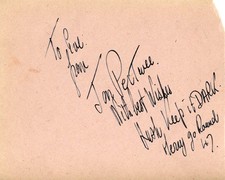 To
from
Jon Pertwee
With best Wishes
Hush Keep it DARK.
Merry go Round
47.